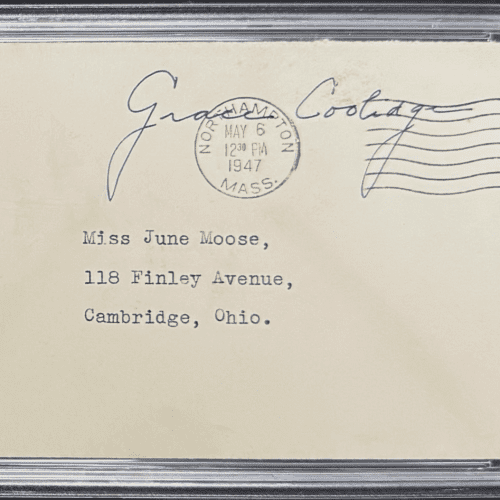 Grace Coolidge
NORTHAMPTON
MAY 6
12 30 PM
1947
MASS.
Miss June Moose,
118 Finley Avenue,
Cambridge, Ohio.